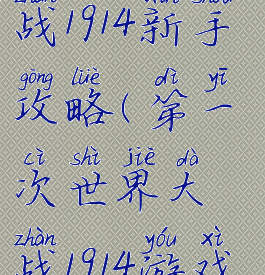 zhàn xīn shǒu
战1914新手
gōng lüè dì yī
攻略(第一
cì shì jiè dà
次世界大
zhàn yóu xì
战1914游戏